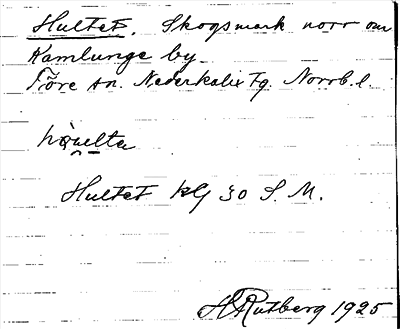 Hultet. Skogsmark norr om
Kamlunge by.
Töre sn. Nederkalix tg. Norrb. l.
Hultet kg 30 S. M.
H Rutberg 1925